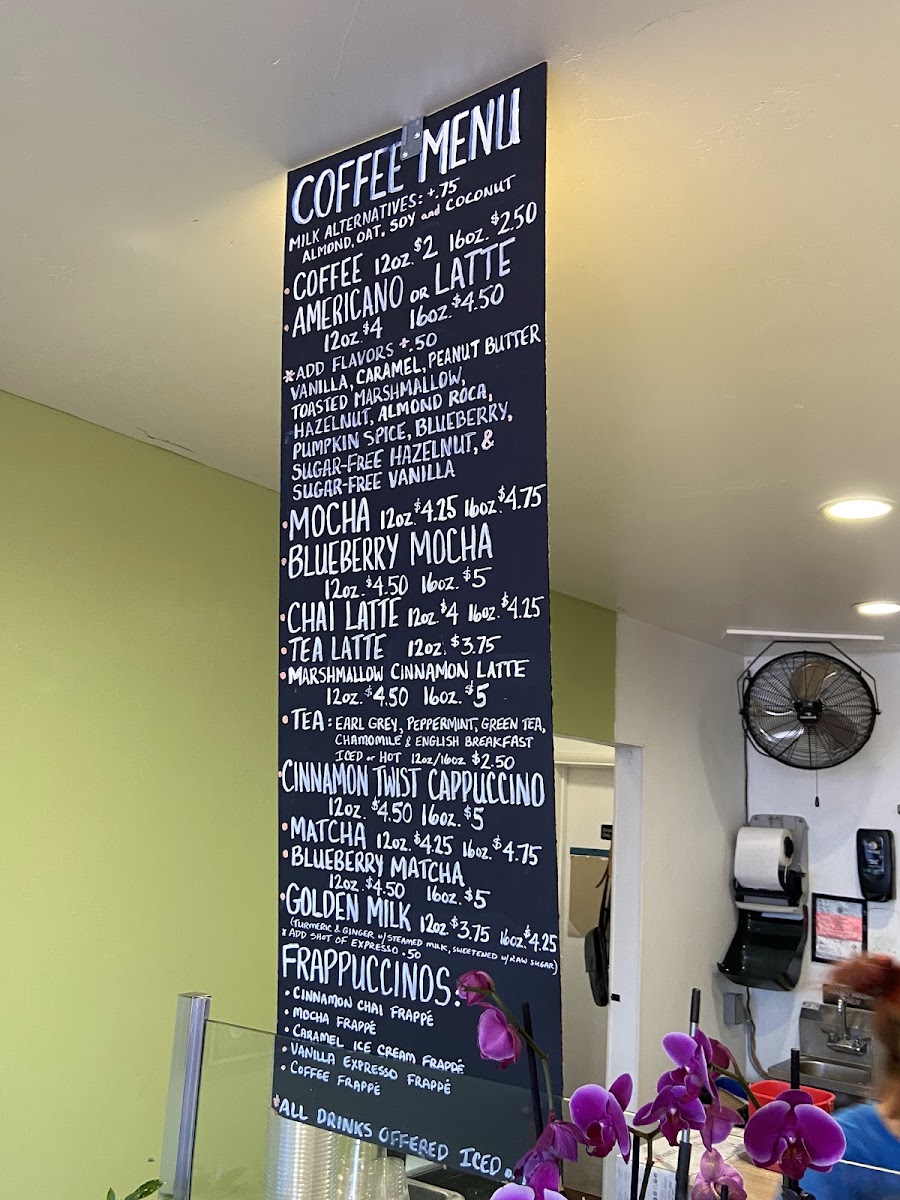 COFFEE MENU
MILK ALTERNATIVES: +.75
ALMOND, OAT, SOY and COCONUT
• COFFEE 12oz. $2 16oz. $2.50
• AMERICANO OR LATTE
12oz. $4 16oz. $4.50
*ADD FLAVORS +.50
VANILLA, CARAMEL, PEANUT BUTTER
TOASTED MARSHMALLOW,
HAZELNUT, ALMOND ROCA,
PUMPKIN SPICE, BLUEBERRY,
SUGAR-FREE HAZELNUT, &
SUGAR-FREE VANILLA
• MOCHA 12oz. $4.25 16oz. $4.75
• BLUEBERRY MOCHA
12oz. $4.50 16oz. $5
• CHAI LATTE 12oz $4 16oz. $4.25
• TEA LATTE 12oz. $3.75
• MARSHMALLOW CINNAMON LATTE
12oz. $4.50 16oz. $5
• TEA: EARL GREY, PEPPERMINT, GREEN TEA,
CHAMOMILE & ENGLISH BREAKFAST
ICED or HOT 12oz/16oz $2.50
• CINNAMON TWIST CAPPUCCINO
12oz. $4.50 16oz. $5
• MATCHA 12oz. $4.25 16oz. $4.75
• BLUEBERRY MATCHA
12oz. $4.50 16oz. $5
• GOLDEN MILK 12oz. $3.75 16oz. $4.25
(TURMERIC & GINGER W/ STEAMED MILK, SWEETENED W/ RAW SUGAR)
*ADD SHOT OF EXPRESSO .50
FRAPPUCCINOS:
• CINNAMON CHAI FRAPPÉ
• MOCHA FRAPPÉ
• CARAMEL ICE CREAM FRAPPÉ
• VANILLA EXPRESSO FRAPPÉ
• COFFEE FRAPPE
*ALL DRINKS OFFERED ICED